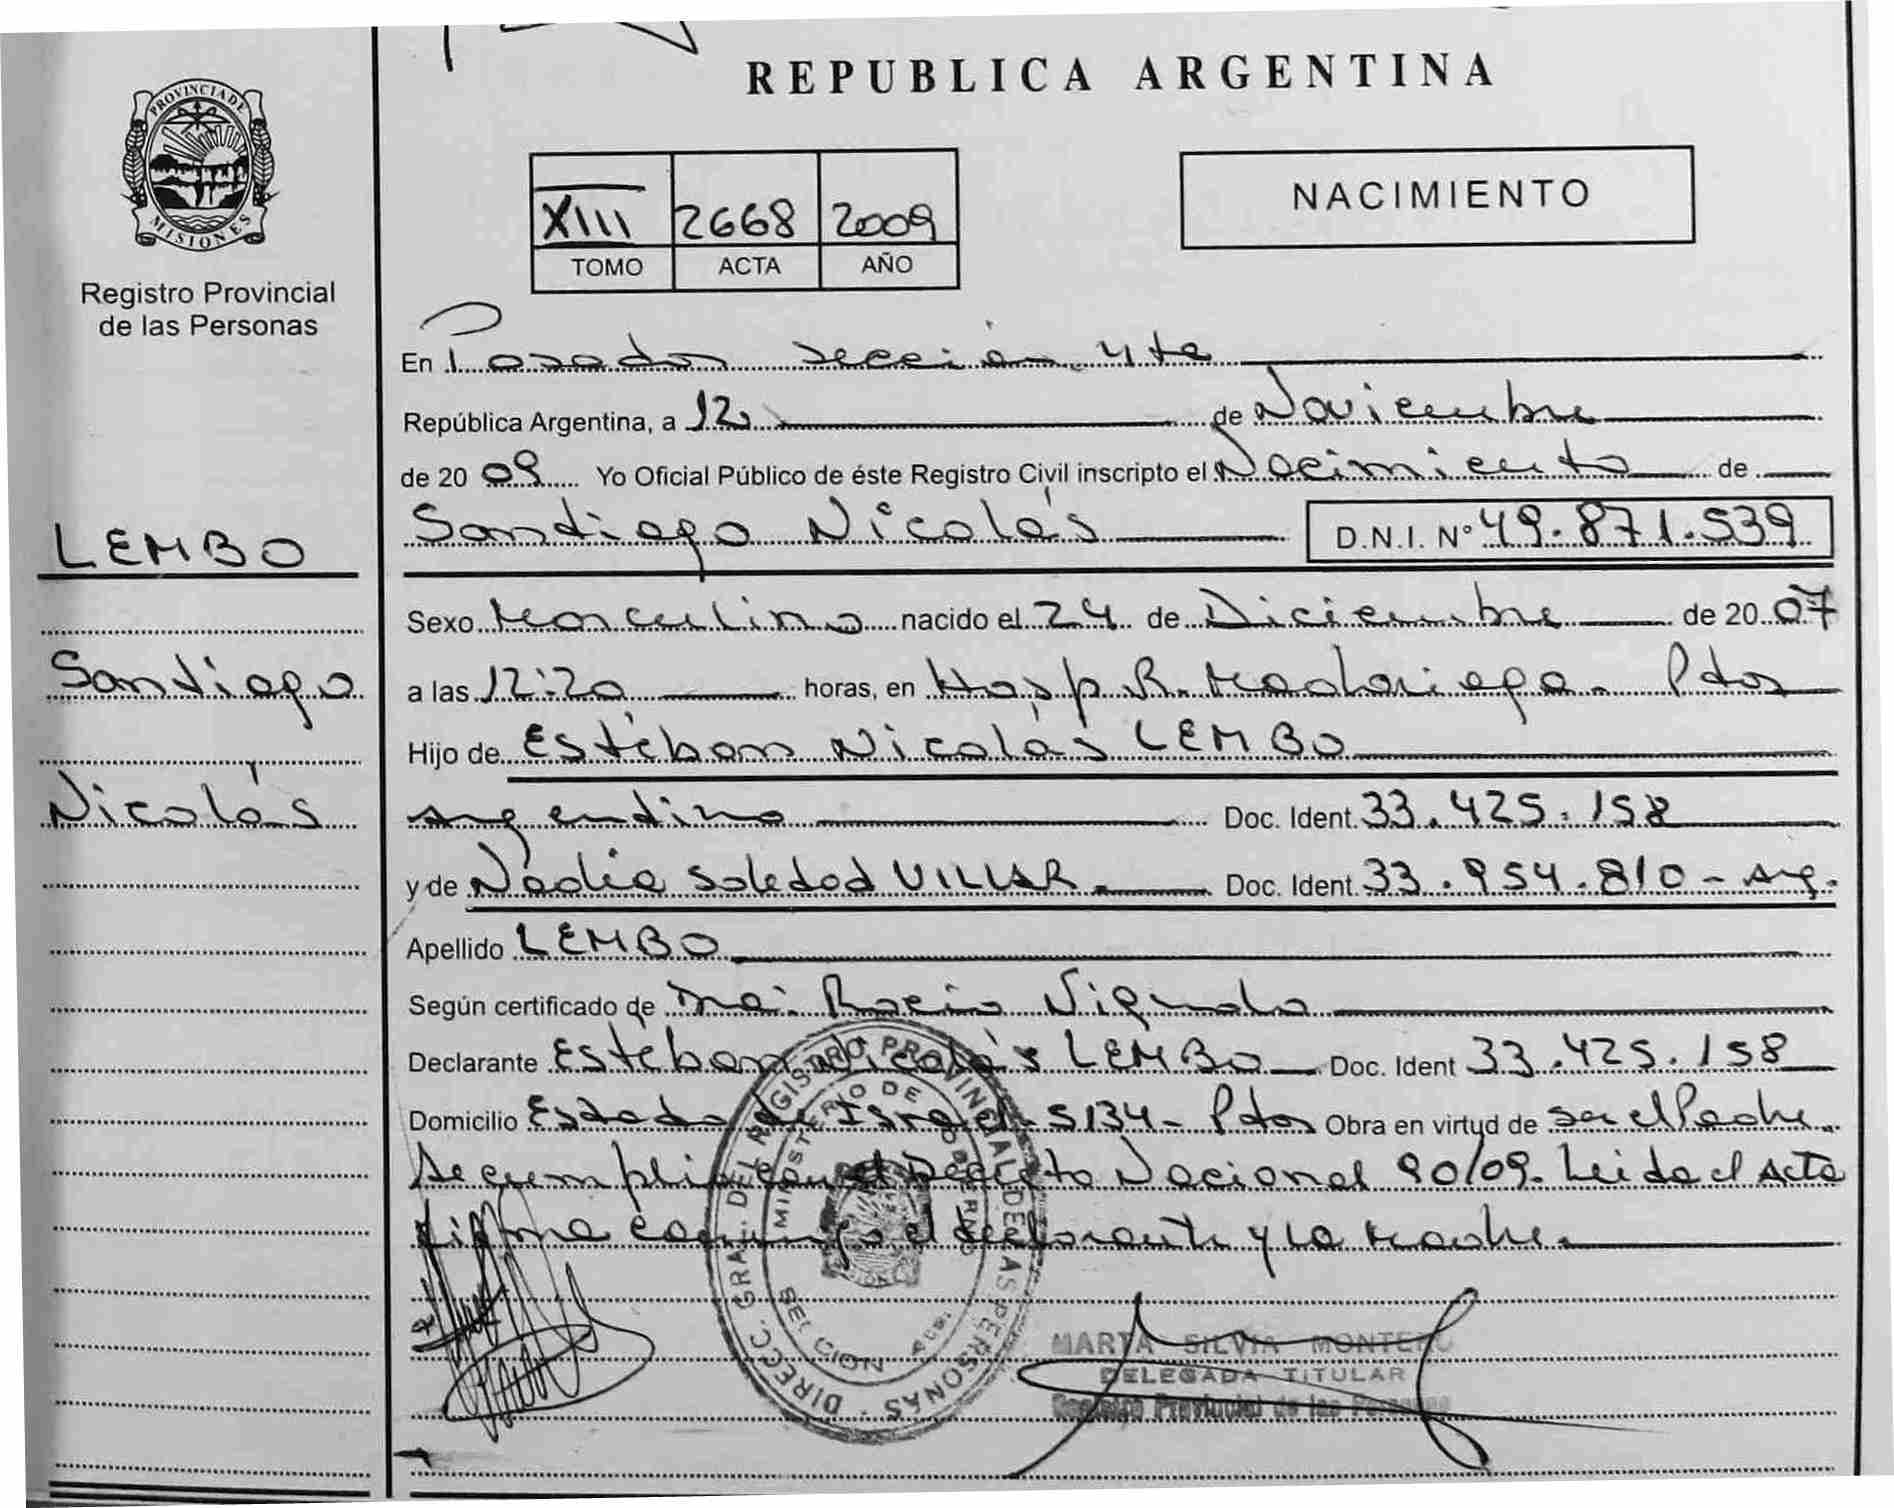 REPUBLICA ARGENTINA
PROVINCIA DE
MISIONES
Registro Provincial
de las Personas
XIII 2668 2009
TOMO ACTA AÑO
NACIMIENTO
LEMBO
Santiago
Nicolás
En Posadas sección 4ta
República Argentina, a 12 de Noviembre
de 20 09 Yo Oficial Público de éste Registro Civil inscripto el Nacimiento de
Santiago Nicolás D.N.I. N° 49.871.539
Sexo Masculino nacido el 24 de Diciembre de 20 07
a las 12:20 horas, en Hosp R. Madariaga - Pdas
Hijo de Estéban Nicolás LEMBO
Argentino Doc. Ident. 33.425.158
y de Nadia Soledad VILLAR Doc. Ident. 33.954.810 - Arg.
Apellido LEMBO
Según certificado de Rocio
Declarante Estéban Nicolás LEMBO Doc. Ident 33.425.158
Domicilio Estado de Israel 5134 - Pdas Obra en virtud de ser el Padre
Se cumplió con el Decreto Nacional 90/09. Leida el Acta
firma conmigo el declarante y la madre.
DIRECC. GRAL. DEL REGISTRO PROVINCIAL DE LAS PERSONAS
MINISTERIO DE GOBIERNO
MARTA SILVIA MONTERO
DELEGADA TITULAR
Registro Provincial de las Personas